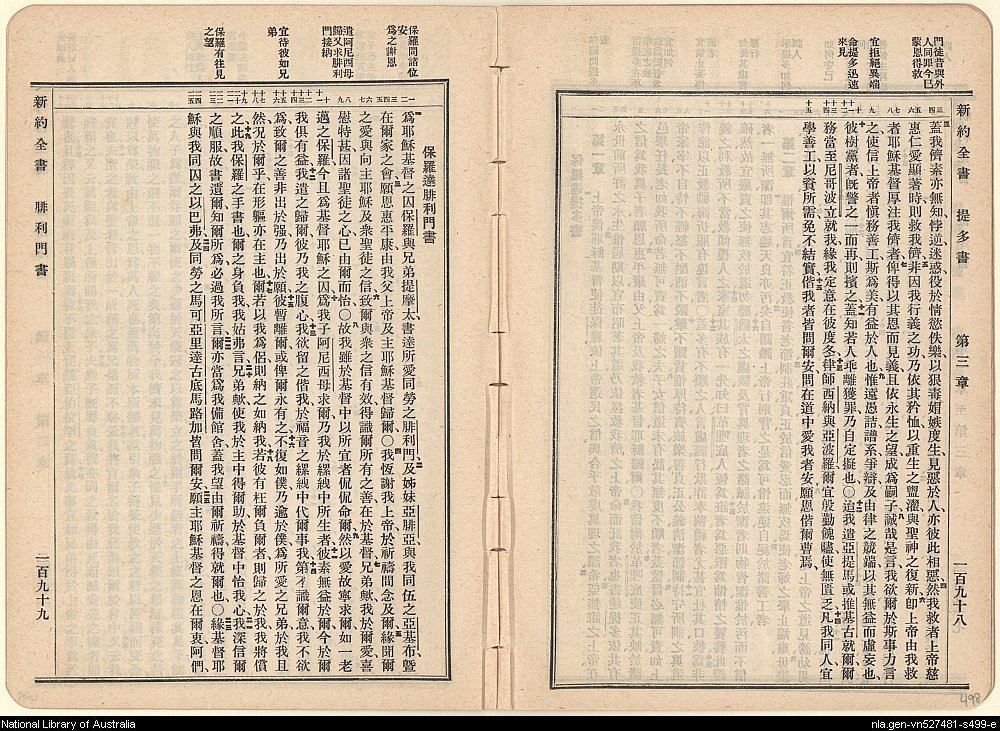 新約全書 提多書 第三章 一百九十八
門徒昔與外
人同罪今已
蒙恩得救
宜拒絕異端
命提多迅速
來見
蓋我儕素亦無知悖逆迷惑役於情慾佚樂以狠毒媢嫉度生見惡於人亦彼此相惡然我救者上帝慈
惠仁愛顯著時則救我儕非因我行義之功乃依其矜恤以重生之盥濯與聖神之復新卽上帝由我救
者耶穌基督厚注我儕者俾得以其恩而見義且依永生之望成爲嗣子誠哉是言我欲爾於斯事力言
之使信上帝者愼務善工斯爲美有益於人也惟遠愚詰譜系爭辯及由律之競端以其無益而虛妄也
彼樹黨者旣警之一而再則擯之蓋知若人乖離獲罪乃自定擬也〇迨我遣亞提馬或推基古就爾爾
務當至尼哥波立就我緣我定意在彼度冬律師西納與亞波羅爾宜殷勤餽贐使無匱乏凡我同人宜
學善工以資所需免不結實偕我者皆問爾安問在道中愛我者安願恩偕爾曹焉
新約全書 腓利門書 二百九十九
保羅問諸位
安
爲之謝恩
遣阿尼西母
歸又求腓利
門接納
宜待彼如兄
弟
保羅有往見
之望
保羅達腓利門書
爲耶穌基督之囚保羅與兄弟提摩太書達所愛同勞之腓利門及姊妹亞腓亞與我同伍之亞基布曁
在爾家之會願恩惠平康由我父上帝及主耶穌基督歸爾〇我恆謝我上帝於祈禱間念及爾緣聞爾
之愛與向主耶穌及衆聖徒之信致爾與衆之信有效得識爾所有之善在於基督兄弟歟我於爾愛喜
慰特甚因諸聖徒之心已由爾而怡〇故我雖於基督中以所宜者侃侃命爾然以愛故寧求爾如一老
邁之保羅今且爲基督耶穌之囚爲我子阿尼西母求爾乃我於縲絏中所生者彼素無益於爾今於爾
我俱有益之我遣之歸爾彼乃我之腹心我欲留之偕我於福音之縲絏中代爾事我第不識爾意我不欲
爲致爾之善非出於强乃出於願彼暫離爾或俾爾永有之不復如僕乃逾於僕爲所愛之兄弟於我且
然況於爾乎在形軀亦在主也爾若以我爲侶則納之如納我若彼有枉爾負爾者則歸之於我我將償
之此我保羅之手書也爾之身負我我姑弗言兄弟歟使我於主中得爾助於基督中怡我心我深信爾
之順服故書遺爾知爾所爲必過我所言爾亦當爲我備館舍蓋我望由爾祈禱得就爾也〇緣基督耶
穌與我同囚之以巴弗及同勞之馬可亞里達古底馬路加皆問爾安願主耶穌基督之恩在爾衷阿們
498
National Library of Australia
nla.gen-vn527481-s499-e